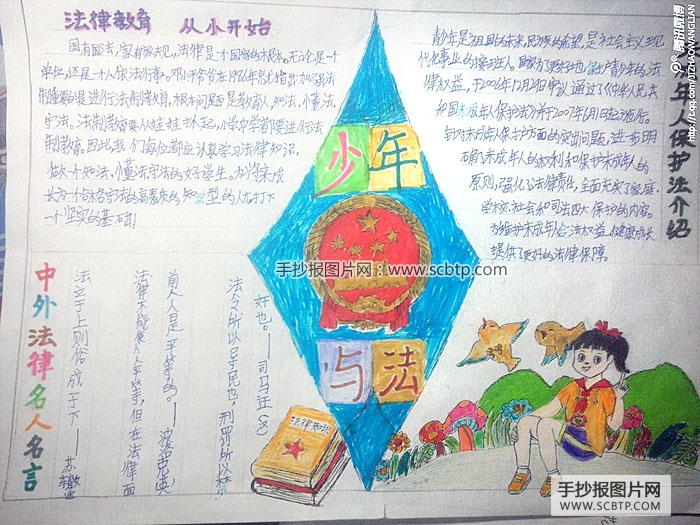 法律教育 从小开始
国有国法,家有家规,法律是一个国家的根本。无论是一个
单位,还是一个人做法行事。邓小平爷爷在1986年就指出:加强法
制重要的是进行法制教育,根本问题是教育人。知法、懂法、
守法。法制教育要从娃娃抓起,小学中学都要进行法
制教育。因此我们每位都应认真学习法律知识,
做一个知法、懂法、守法的好学生。为将来成
长为一个合格守法的高素质的知型的人才打下
一个坚实的基础!
青少年是祖国的未来,民族的希望,是社会主义现
代化事业的接班人。国家为了更好地保护青少年的法
律权益,于2006年12月29日审议通过了《中华人民共
和国未成年人保护法》并于2007年6月1日起施行。
针对未成年人保护方面的突出问题,进一步明
确了未成年人的权利和保护未成年人的
原则,强化了法律责任,全面充实了家庭、
学校、社会和司法四大保护的内容。
为维护未成年人合法权益、健康成长
提供了更好的法律保障。
年人保护法介绍
少年
与法
中外法律名人名言
法令所以导民也,刑罚所以禁
奸也。——司马迁《史
前人人是平等的。——波洛克英
法律不能使人人平等,但在法律面
法立于上则俗成于下——苏辙
法律知识
手抄报图片网:www.scbtp.com
手抄报图片网
WWW.SCBTP.COM
腾讯微博
http://t.qq.com/JTZHAOWANGLIAN